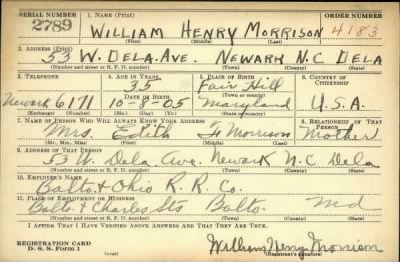 SERIAL NUMBER 1. NAME (Print) ORDER NUMBER
2789 WILLIAM HENRY MORRISON 4183
(First) (Middle) (Last)
2. ADDRESS (Print)
53 W. DELA. AVE. NEWARK N.C. DELA
(Number and street or R. F. D. number) (Town) (County) (State)
3. TELEPHONE 4. AGE IN YEARS 5. PLACE OF BIRTH 6. COUNTRY OF CITIZENSHIP
35 Fair Hill
DATE OF BIRTH (Town or county)
Newark 6171 10-19-05 Maryland U.S.A.
(Exchange) (Number) (Mo.) (Day) (Yr.) (State or country)
7. NAME OF PERSON WHO WILL ALWAYS KNOW YOUR ADDRESS 8. RELATIONSHIP OF THAT PERSON
Mrs. Edith Morrison Mother
(Mr., Mrs., Miss) (First) (Middle) (Last)
9. ADDRESS OF THAT PERSON
53 W. Dela Ave. Newark N.C Dela
(Number and street or R. F. D. number) (Town) (County) (State)
10. EMPLOYER'S NAME
Balto. & Ohio R. R. Co.
11. PLACE OF EMPLOYMENT OR BUSINESS
Balto. & Charles Sts Balto. Md
(Number and street or R. F. D. number) (Town) (County) (State)
I AFFIRM THAT I HAVE VERIFIED ABOVE ANSWERS AND THAT THEY ARE TRUE.
REGISTRATION CARD
D. S. S. Form 1 William Henry Morrison
(Registrant's signature)